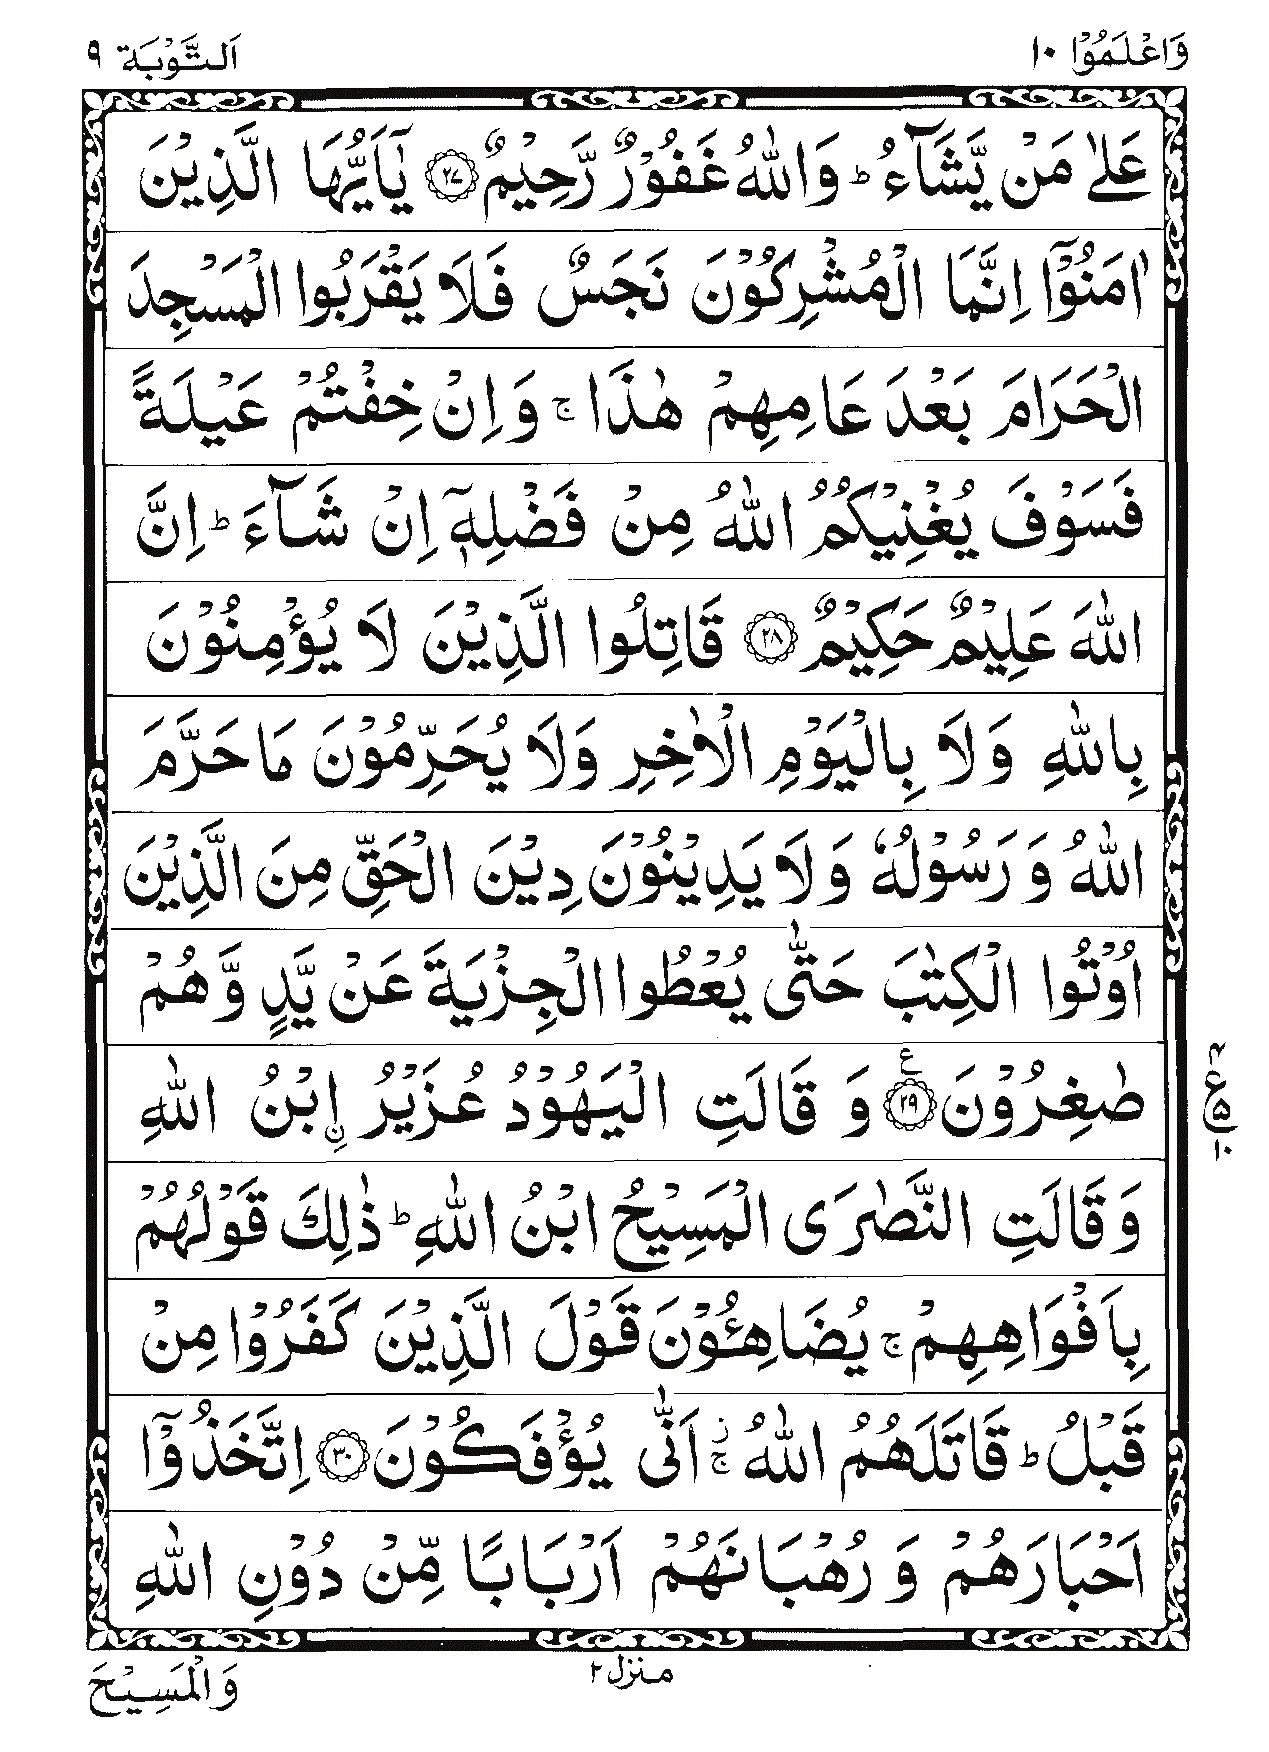 وَاعْلَمُوْا ١٠ اَلتَّوْبَة ٩
عَلٰى مَنْ يَّشَآءُ ؕ وَاللّٰهُ غَفُوْرٌ رَّحِيْمٌ ﴿۲۷﴾ يٰۤاَيُّهَا الَّذِيْنَ
اٰمَنُوْۤا اِنَّمَا الْمُشْرِكُوْنَ نَجَسٌ فَلَا يَقْرَبُوا الْمَسْجِدَ
الْحَرَامَ بَعْدَ عَامِهِمْ هٰذَا ۚ وَاِنْ خِفْتُمْ عَيْلَةً
فَسَوْفَ يُغْنِيْكُمُ اللّٰهُ مِنْ فَضْلِهٖۤ اِنْ شَآءَ ؕ اِنَّ
اللّٰهَ عَلِيْمٌ حَكِيْمٌ ﴿۲۸﴾ قَاتِلُوا الَّذِيْنَ لَا يُؤْمِنُوْنَ
بِاللّٰهِ وَلَا بِالْيَوْمِ الْاٰخِرِ وَلَا يُحَرِّمُوْنَ مَا حَرَّمَ
اللّٰهُ وَرَسُوْلُهٗ وَلَا يَدِيْنُوْنَ دِيْنَ الْحَقِّ مِنَ الَّذِيْنَ
اُوْتُوا الْكِتٰبَ حَتّٰى يُعْطُوا الْجِزْيَةَ عَنْ يَّدٍ وَّهُمْ
صٰغِرُوْنَ ﴿۲۹﴾ ع وَقَالَتِ الْيَهُوْدُ عُزَيْرُ ۨابْنُ اللّٰهِ
ع ۴ ۵ ١٠
وَقَالَتِ النَّصٰرَى الْمَسِيْحُ ابْنُ اللّٰهِ ؕ ذٰلِكَ قَوْلُهُمْ
بِاَفْوَاهِهِمْ ۚ يُضَاهِـُٔوْنَ قَوْلَ الَّذِيْنَ كَفَرُوْا مِنْ
قَبْلُ ؕ قَاتَلَهُمُ اللّٰهُ ۚ ز اَنّٰى يُؤْفَكُوْنَ ﴿۳۰﴾ اِتَّخَذُوْۤا
اَحْبَارَهُمْ وَرُهْبَانَهُمْ اَرْبَابًا مِّنْ دُوْنِ اللّٰهِ
منزل ٢
وَالْمَسِيْحَ